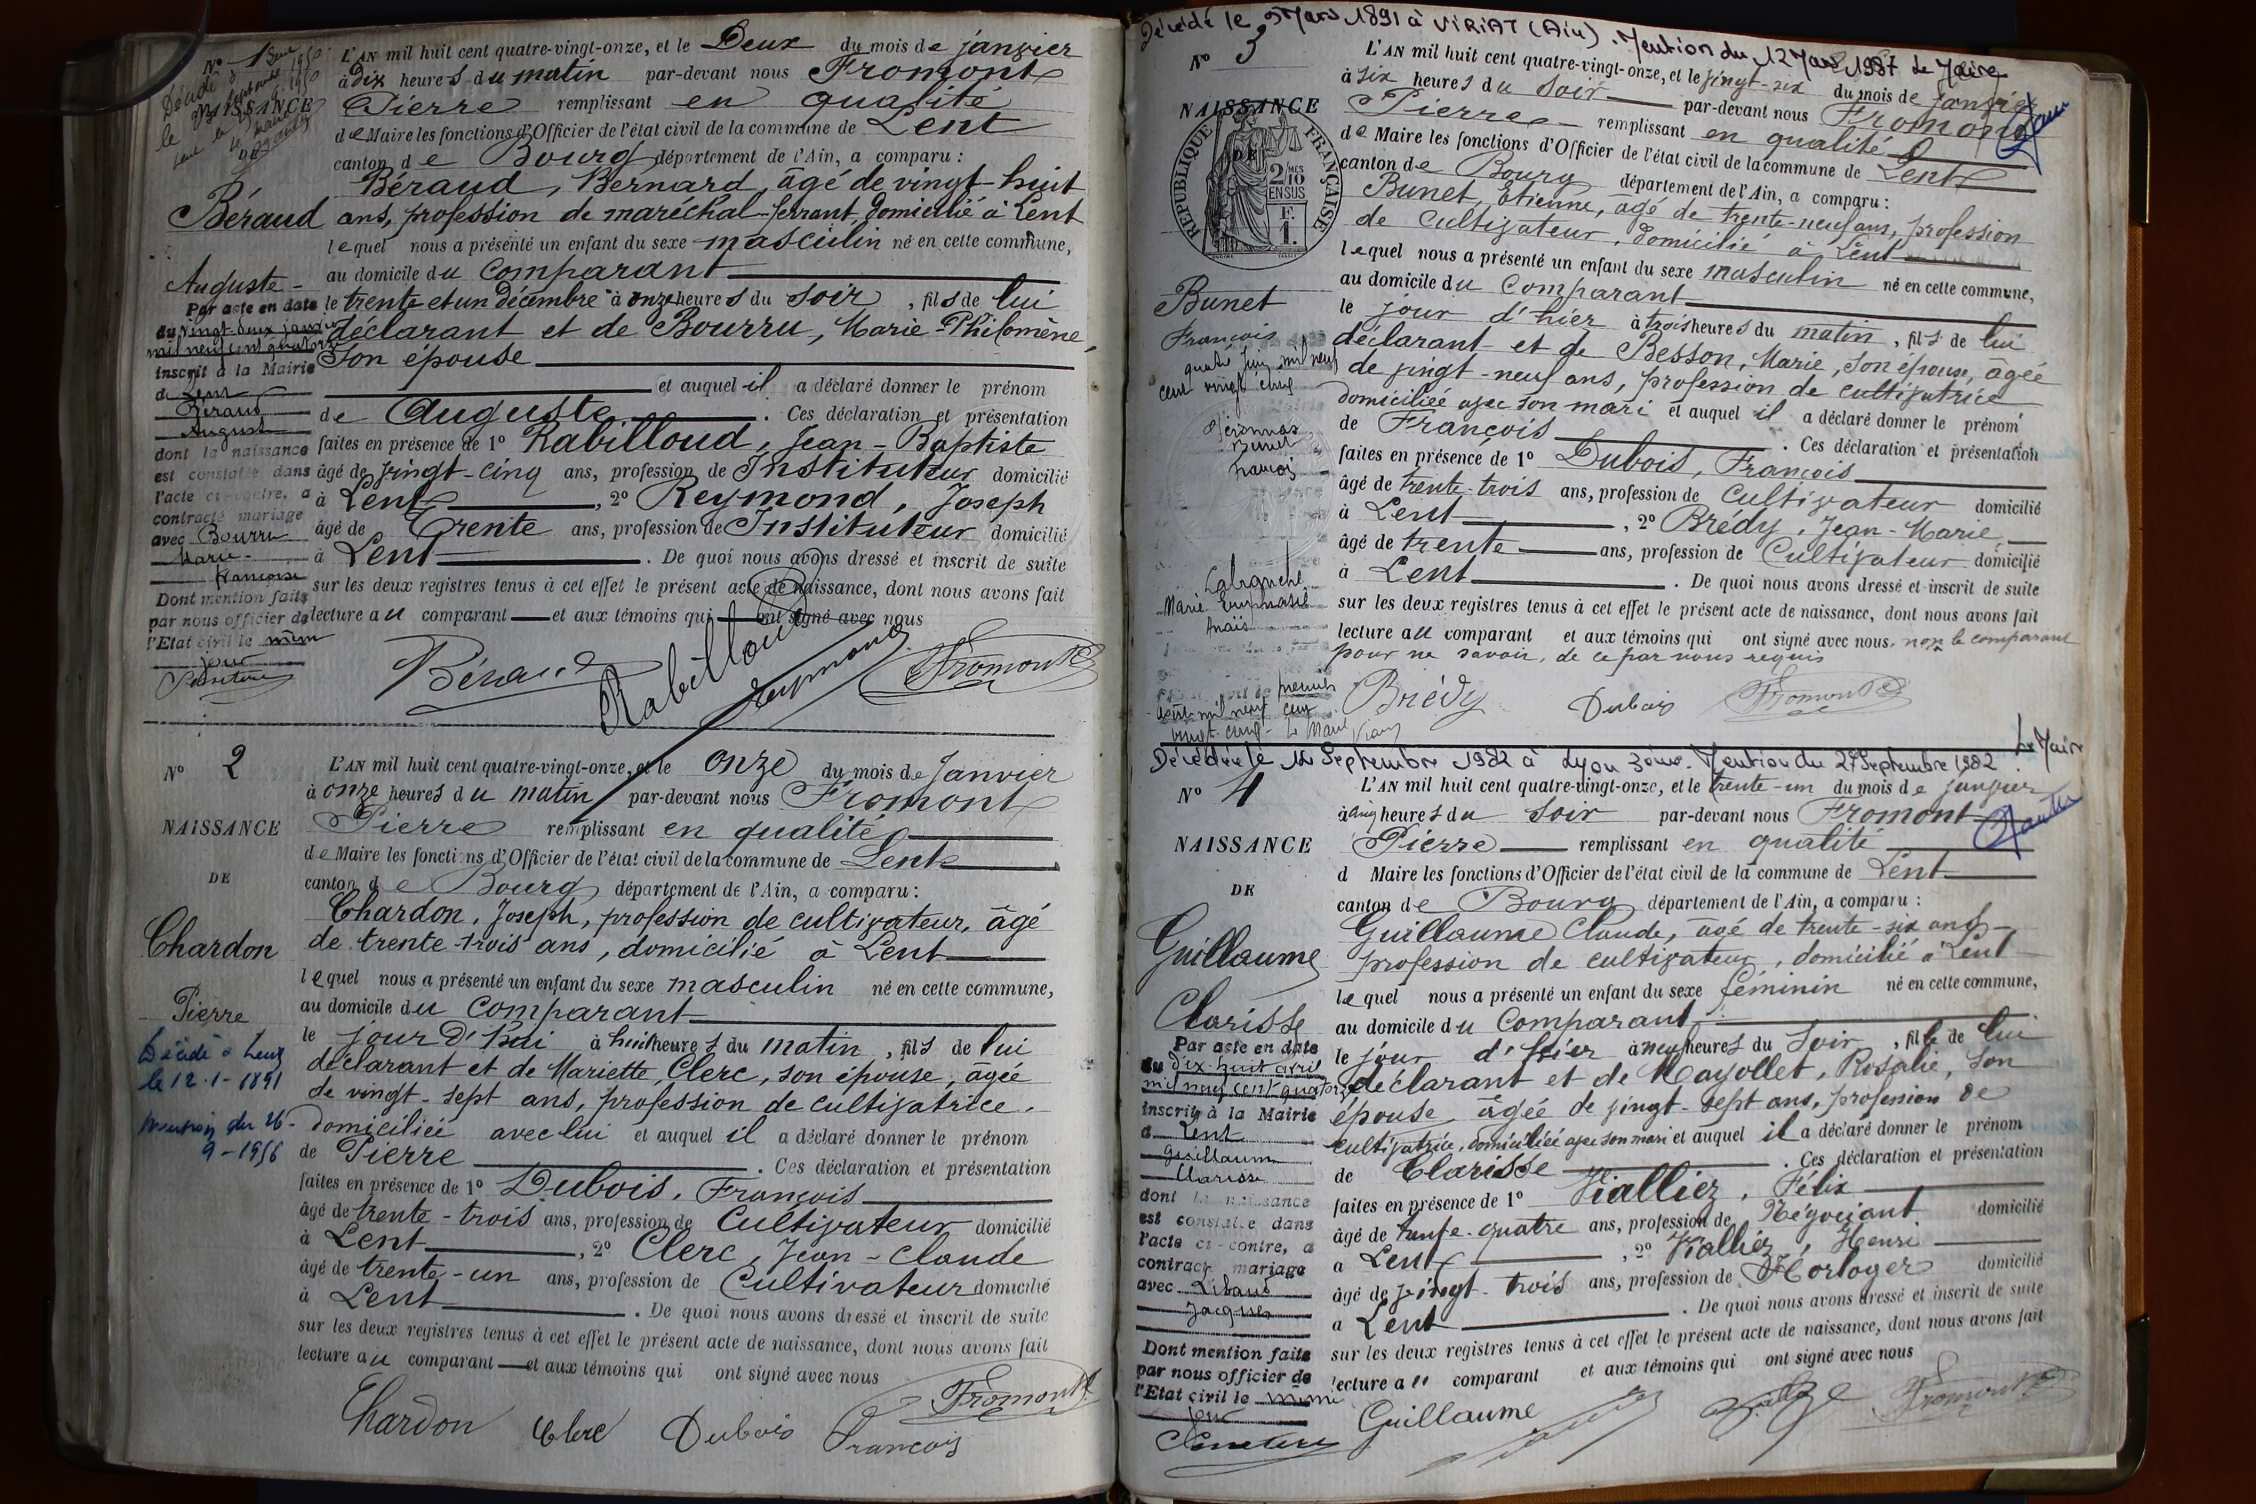 N° 1
NAISSANCE
DE
Béraud
Auguste
Par acte en date
du vingt-deux janvier
mil neuf cent quatorze
inscrit à la Mairie
de Lent
Béraud
August
dont la naissance
est constatée dans
l'acte ci-contre, a
contracté mariage
avec Bourru
Marie
Françoise
Dont mention faite
par nous officier de
l'Etat civil le même
jour
L'AN mil huit cent quatre-vingt-onze, et le Deux du mois de janvier
à dix heures du matin par-devant nous Fromont
Pierre remplissant en qualité
de Maire les fonctions d'Officier de l'état civil de la commune de Lent
canton de Bourg département de l'Ain, a comparu :
Béraud, Bernard, âgé de vingt-huit
ans, profession de maréchal-ferrant, domicilié à Lent
lequel nous a présenté un enfant du sexe masculin né en cette commune,
au domicile du comparant
le trente et un décembre à onze heures du soir, fils de lui
déclarant et de Bourru, Marie-Philomène,
son épouse
et auquel il a déclaré donner le prénom
de Auguste. Ces déclaration et présentation
faites en présence de 1° Rabilloud, Jean-Baptiste
âgé de vingt-cinq ans, profession de Instituteur domicilié
à Lent, 2° Reymond, Joseph
âgé de Trente ans, profession de Instituteur domicilié
à Lent. De quoi nous avons dressé et inscrit de suite
sur les deux registres tenus à cet effet le présent acte de naissance, dont nous avons fait
lecture au comparant et aux témoins qui ont signé avec nous
Béraud Rabilloud Reymond Fromont
N° 2
NAISSANCE
DE
Chardon
Pierre
Décédé à Lent
le 12-1-1891
Mention du 26-
9-1956
L'AN mil huit cent quatre-vingt-onze, et le onze du mois de Janvier
à onze heures du matin par-devant nous Fromont
Pierre remplissant en qualité
de Maire les fonctions d'Officier de l'état civil de la commune de Lent
canton de Bourg département de l'Ain, a comparu :
Chardon, Joseph, profession de cultivateur, âgé
de trente-trois ans, domicilié à Lent
lequel nous a présenté un enfant du sexe masculin né en cette commune,
au domicile du comparant
le jour d'hui à huit heures du matin, fils de lui
déclarant et de Mariette Clerc, son épouse, âgée
de vingt-sept ans, profession de cultivatrice,
domiciliée avec lui et auquel il a déclaré donner le prénom
de Pierre. Ces déclaration et présentation
faites en présence de 1° Dubois, François
âgé de trente-trois ans, profession de Cultivateur domicilié
à Lent, 2° Clerc, Jean-Claude
âgé de trente-un ans, profession de Cultivateur domicilié
à Lent. De quoi nous avons dressé et inscrit de suite
sur les deux registres tenus à cet effet le présent acte de naissance, dont nous avons fait
lecture au comparant et aux témoins qui ont signé avec nous
Chardon Clerc Dubois François Fromont
Décédé le 9 Mars 1891 à VIRIAT (Ain). Mention du 12 Mars 1987 Le Maire
N° 3
NAISSANCE
DE
REPUBLIQUE FRANÇAISE
Bunet
François
quatre juin mil neuf
cent vingt cinq
Péronnas
Bunet
François
Marie
Anaïs
premier
mil neuf cent
vingt-cinq Le Maire
L'AN mil huit cent quatre-vingt-onze, et le vingt-six du mois de janvier
à six heures du soir par-devant nous Fromont
Pierre remplissant en qualité
de Maire les fonctions d'Officier de l'état civil de la commune de Lent
canton de Bourg département de l'Ain, a comparu :
Bunet, Etienne, âgé de trente-neuf ans, profession
de cultivateur, domicilié à Lent
lequel nous a présenté un enfant du sexe masculin né en cette commune,
au domicile du comparant
le jour d'hier à trois heures du matin, fils de lui
déclarant et de Besson, Marie, son épouse, âgée
de vingt-neuf ans, profession de cultivatrice
domiciliée avec son mari et auquel il a déclaré donner le prénom
de François. Ces déclaration et présentation
faites en présence de 1° Dubois, François
âgé de trente-trois ans, profession de Cultivateur domicilié
à Lent, 2° Brédy, Jean-Marie
âgé de trente ans, profession de Cultivateur domicilié
à Lent. De quoi nous avons dressé et inscrit de suite
sur les deux registres tenus à cet effet le présent acte de naissance, dont nous avons fait
lecture au comparant et aux témoins qui ont signé avec nous, non le comparant
pour ne savoir, de ce par nous requis
Brédy Dubois Fromont
Décédée le 12 Septembre 1982 à Lyon 3ème. Mention du 27 Septembre 1982 Le Maire
N° 4
NAISSANCE
DE
Guillaume
Clarisse
Par acte en date
du dix-huit avril
mil neuf cent quatorze
inscrit à la Mairie
à Lent
Guillaume
Clarisse
dont la naissance
est constatée dans
l'acte ci-contre, a
contracté mariage
avec
Jacques
Dont mention faite
par nous officier de
l'Etat civil le même
jour
L'AN mil huit cent quatre-vingt-onze, et le trente-un du mois de janvier
à cinq heures du soir par-devant nous Fromont
Pierre remplissant en qualité
d Maire les fonctions d'Officier de l'état civil de la commune de Lent
canton de Bourg département de l'Ain, a comparu :
Guillaume Claude, âgé de trente-six ans,
profession de cultivateur, domicilié à Lent
lequel nous a présenté un enfant du sexe féminin né en cette commune,
au domicile du comparant
le jour d'hier à neuf heures du soir, fille de lui
déclarant et de Mayollet, Rosalie, son
épouse âgée de vingt-sept ans, profession de
cultivatrice, domiciliée avec son mari et auquel il a déclaré donner le prénom
de Clarisse. Ces déclaration et présentation
faites en présence de 1° Vialliez, Félix
âgé de trente-quatre ans, profession de Négociant domicilié
à Lent, 2° Vialliez, Henri
âgé de vingt-trois ans, profession de Horloger domicilié
à Lent. De quoi nous avons dressé et inscrit de suite
sur les deux registres tenus à cet effet le présent acte de naissance, dont nous avons fait
lecture au comparant et aux témoins qui ont signé avec nous
Guillaume Fromont